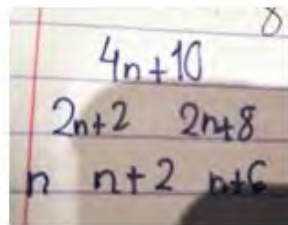 8
4n+10
2n+2 2n+8
n n+2 n+6